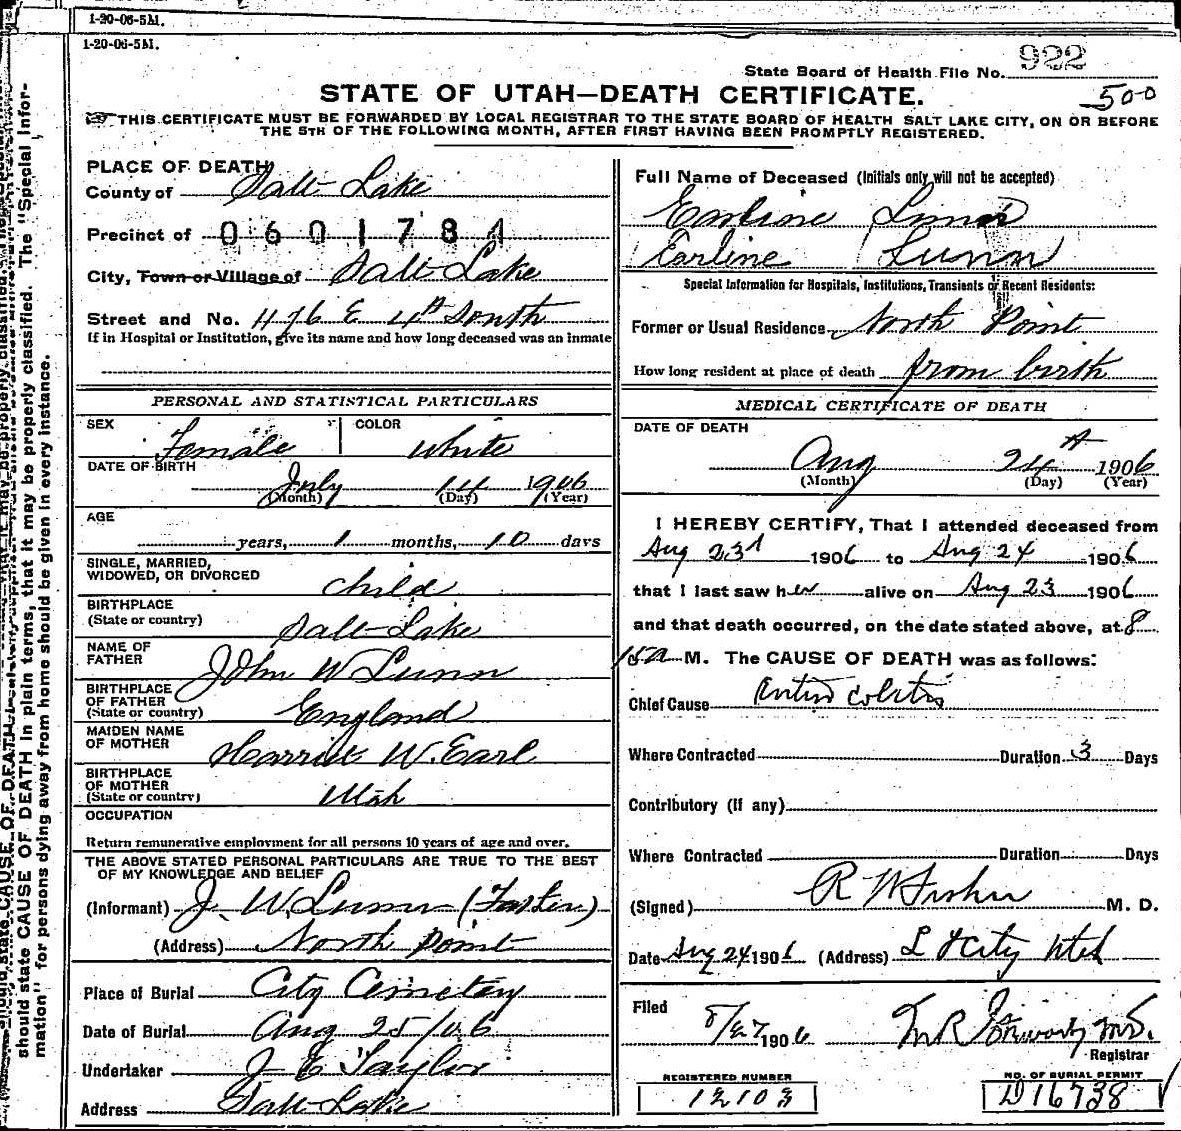 1-20-06-5M.
1-20-06-5M.
922
State Board of Health File No.
500
STATE OF UTAH—DEATH CERTIFICATE.
THIS CERTIFICATE MUST BE FORWARDED BY LOCAL REGISTRAR TO THE STATE BOARD OF HEALTH SALT LAKE CITY, ON OR BEFORE
THE 5TH OF THE FOLLOWING MONTH, AFTER FIRST HAVING BEEN PROMPTLY REGISTERED.
PLACE OF DEATH
County of Salt Lake
Precinct of 0601784
City, Town or Village of Salt Lake
Street and No. 476 E 4th South
If in Hospital or Institution, give its name and how long deceased was an inmate
PERSONAL AND STATISTICAL PARTICULARS
SEX Female COLOR White
DATE OF BIRTH July 14 1906
(Month) (Day) (Year)
AGE
years, 1 months, 10 days
SINGLE, MARRIED,
WIDOWED, OR DIVORCED Child
BIRTHPLACE
(State or country) Salt Lake
NAME OF
FATHER John W Lunn
BIRTHPLACE
OF FATHER
(State or country) England
MAIDEN NAME
OF MOTHER Harriet W. Earl
BIRTHPLACE
OF MOTHER
(State or country) Utah
OCCUPATION
Return remunerative employment for all persons 10 years of age and over.
THE ABOVE STATED PERSONAL PARTICULARS ARE TRUE TO THE BEST
OF MY KNOWLEDGE AND BELIEF
(Informant) J. W. Lunn (Father)
(Address) North Point
Place of Burial City Cemetery
Date of Burial Aug 25/06
Undertaker J E Taylor
Address Salt Lake
Full Name of Deceased (Initials only will not be accepted)
Earline Lunn
Earline Lunn
Special Information for Hospitals, Institutions, Transients or Recent Residents:
Former or Usual Residence North Point
How long resident at place of death from birth
MEDICAL CERTIFICATE OF DEATH
DATE OF DEATH
Aug 24th 1906
(Month) (Day) (Year)
I HEREBY CERTIFY, That I attended deceased from
Aug 23d 1906 to Aug 24 1906
that I last saw her alive on Aug 23 1906
and that death occurred, on the date stated above, at 8
15 a M. The CAUSE OF DEATH was as follows:
Chief Cause Entero colitis
Where Contracted Duration 3 Days
Contributory (If any)
Where Contracted Duration Days
(Signed) R W Fisher M. D.
Date Aug 24 1906 (Address) City Utah
Filed 8/27 1906 M.D.
Registrar
REGISTERED NUMBER
12103
NO. OF BURIAL PERMIT
D16738
should state CAUSE OF DEATH in plain terms, that it may be properly classified. The "Special Infor-
mation" for persons dying away from home should be given in every instance.